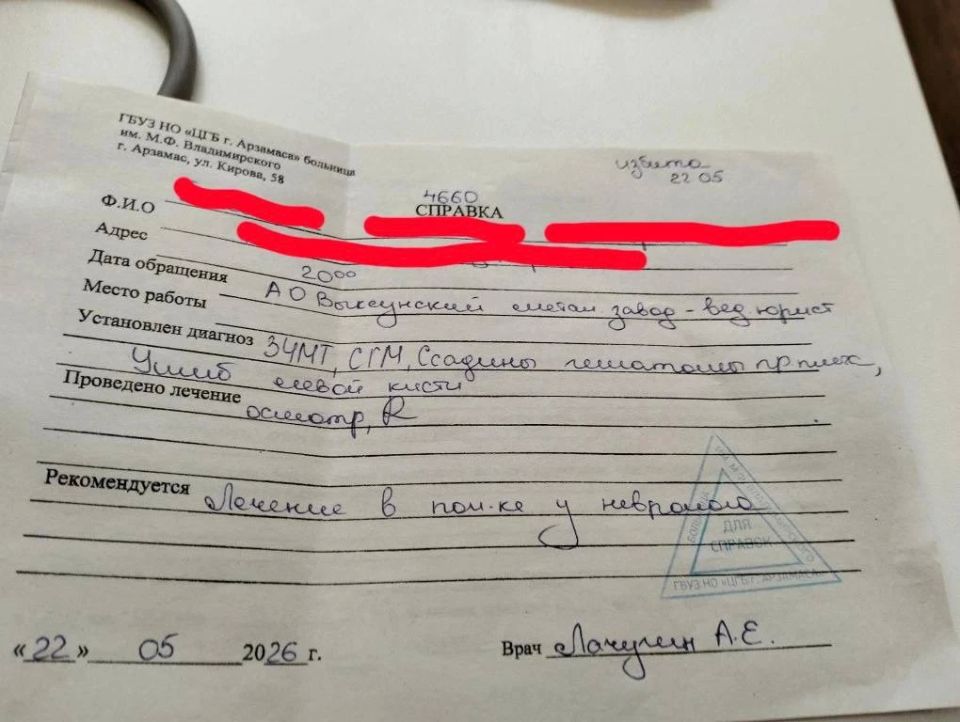 ГБУЗ НО «ЦГБ г. Арзамаса» больница
им. М.Ф. Владимирского
г. Арзамас, ул. Кирова, 58
избита
22 05
4660
СПРАВКА
Ф.И.О
Адрес
Дата обращения 20⁰⁰
Место работы АО Выксунский метал. завод - вед юрист
Установлен диагноз ЗЧМТ, СГМ, Ссадины гематомы пр.плеч,
Ушиб левой кисти
Проведено лечение осмотр, R
Рекомендуется Лечение в пол-ке у невролога
БОЛЬНИЦА ИМ. М.Ф. ВЛАДИМИРСКОГО
ДЛЯ
СПРАВОК
ГБУЗ НО «ЦГБ Г. АРЗАМАСА»
«22» 05 2026 г.
Врач А.Е.